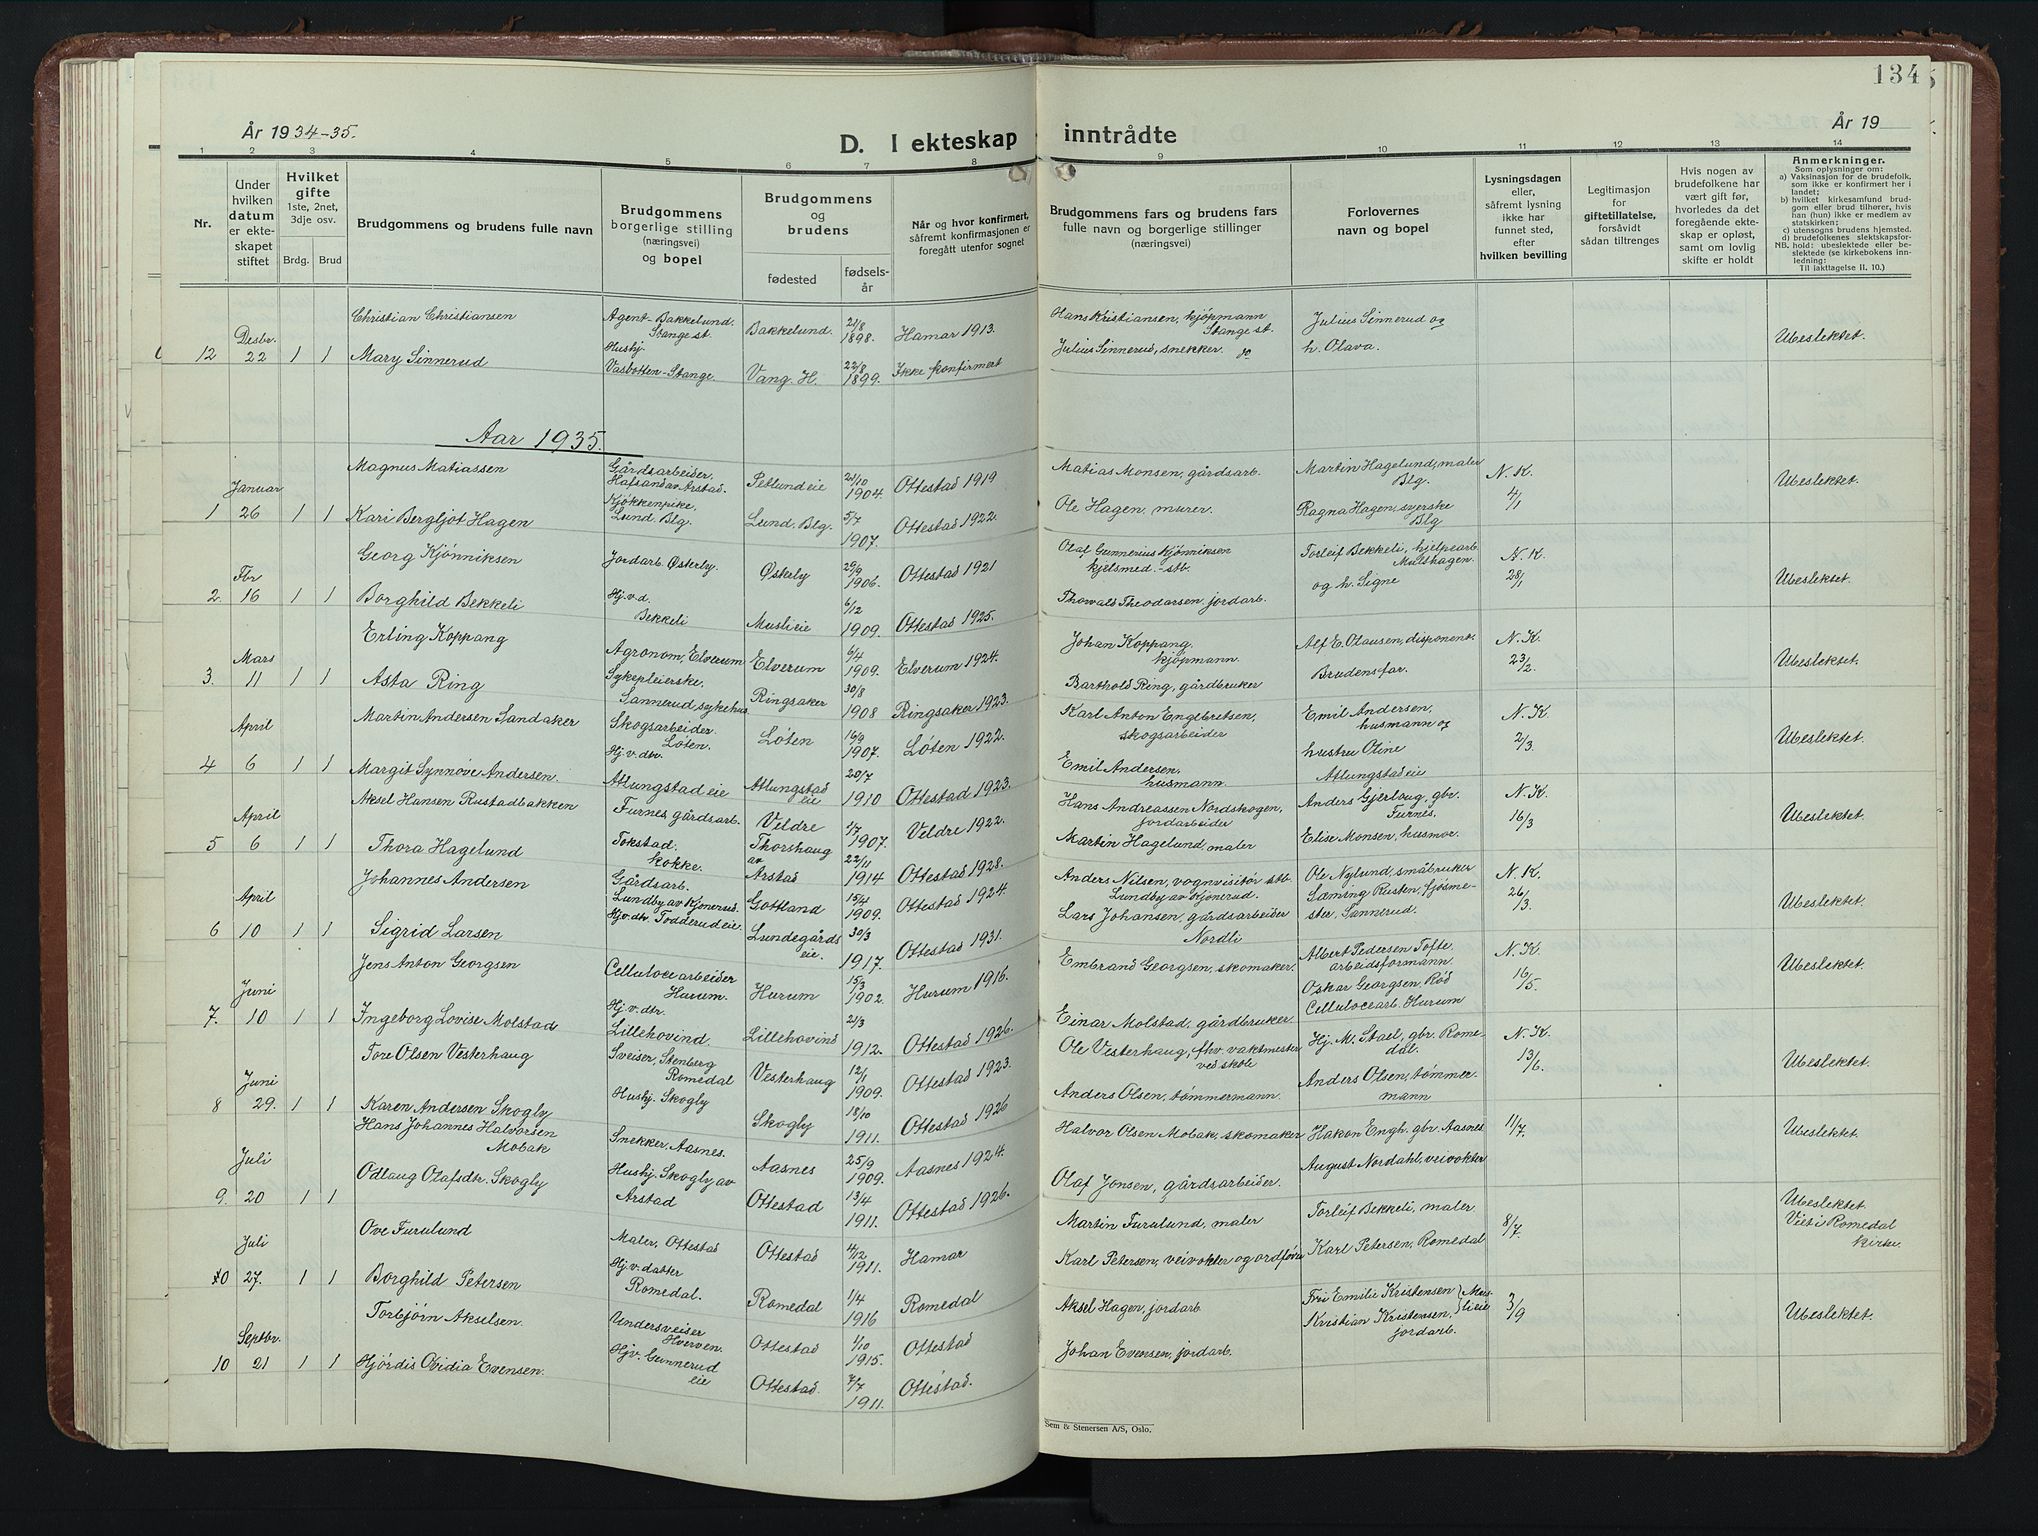 134
År 1934-35.
D. I ekteskap inntrådte
År 19
1 2 3 4 5 6 7 8 9 10 11 12 13 14
Nr.
Under hvilken datum er ekteskapet stiftet
Hvilket gifte 1ste, 2net, 3dje osv.
Brdg. Brud
Brudgommens og brudens fulle navn
Brudgommens borgerlige stilling (næringsvei) og bopel
Brudgommens og brudens
fødested fødselsår
Når og hvor konfirmert, såfremt konfirmasjonen er foregått utenfor sognet
Brudgommens fars og brudens fars fulle navn og borgerlige stillinger (næringsvei)
Forlovernes navn og bopel
Lysningsdagen eller, såfremt lysning ikke har funnet sted, efter hvilken bevilling
Legitimasjon for giftetillatelse, forsåvidt sådan tiltrenges
Hvis nogen av brudefolkene har vært gift før, hvorledes da det foregående ekteskap er opløst, samt om lovlig skifte er holdt
Anmerkninger.
Som oplysninger om:
a) Vaksinasjon for de brudefolk, som ikke er konfirmert her i landet;
b) hvilket kirkesamfund brudgom eller brud tilhører, hvis han (hun) ikke er medlem av statskirken;
c) utensogns brudens hjemsted.
d) brudefolkenes slektskapsforhold: ubeslektede eller beslektede (se kirkebokens innledning:
NB. Til iakttagelse II. 10.)
12 Desbr. 22 1 1
Christian Christiansen Agent- Bakkelund. Stange st. Bakkelund. 21/8 1898. Hamar 1913. Hans Kristiansen, kjöpmann Stange st. Julius Sinnerud og Ubeslektet.
Mary Sinnerud Hushj. Vasbotten-Stange. Vang. H. 22/8 1899. Ikke konfirmert Julius Sinnerud, snekker. do h. Olava.
Aar 1935.
1 Januar 26 1 1
Magnus Matiassen Gårdsarbeider, Hafsand av Arstad. Petlundeie 21/10 1904. Ottestad 1919 Matias Monsen, gårdsarb. Martin Hagelund, maler Blg. N. K. 4/1 Ubeslektet.
Kari Bergljot Hagen Kjökkenpike, Lund. Blg. Lund. Blg. 5/7 1907. Ottestad 1922. Ole Hagen, murer. Ragna Hagen, syerske Blg
2. Fbr 16 1 1
Georg Kjønniksen Jordarb. Østerly. Østerly 29/9 1906. Ottestad 1921 Olaf Gunnerius Kjønniksen kjelsmed.-stb. Torleif Bekkeli, hjelpearb. Mulshagen. N. K. 28/1 Ubeslektet.
Borghild Bekkeli Hj. v. d. Bekkeli Muslieie 6/12 1909. Ottestad 1925. Thowald Theodorsen, jordarb. og h. Signe
3. Mars 11 1 1
Erling Koppang Agronom, Elverum Elverum 6/4 1909. Elverum 1924. Johan Koppang, kjöpmann. Alf E. Olausen, disponent. N. K. 23/2. Ubeslektet.
Asta Ring Sykepleierske. Sannerud sykehus Ringsaker 30/8 1908 Ringsaker 1923. Barthold Ring, gårdbruker Brudens far.
4 April 6 1 1
Martin Andersen Sandaker Skogsarbeider. Löten. Löten 16/9 1907. Löten 1922. Karl Anton Engebretsen, skogsarbeider Emil Andersen, husmann og N. K. 2/3. Ubeslektet.
Margit Synnöve Andersen. Hj. v. dtr. Atlungstadeie Atlungstad eie 20/7 1910 Ottestad 1923. Emil Andersen, husmann. hustru Oline Atlungstadeie
5 April 6 1 1
Aksel Hansen Rustadbakken Furnes gårdsarb. Veldre 1/7 1907. Veldre 1922. Hans Andreassen Nordskogen, jordarbeider Anders Gjerloug, gbr. Furnes. N. K. 16/3 Ubeslektet.
Thora Hagelund Tokstad. kokke. Thorshaug av Arstad 22/11 1914 Ottestad 1928. Martin Hagelund, maler Elise Monsen, husmor.
6 April 10 1 1
Johannes Andersen Gårdsarb. Lundby av Kjonerud. Gottland 15/4 1909. Ottestad 1924. Anders Nilsen, vognvisitör stb. Lundby av Kjonerud. Ole Nylund, småbruker N. K. 26/3. Ubeslektet.
Sigrid Larsen Hj. v. dtr. Todderudeie. Lundegårds eie. 30/3 1917. Ottestad 1931. Lars Johansen, gårdsarbeider Nordli Sæming Rusten, fjösmester, Sannerud.
7. Juni 10 1 1
Jens Anton Georgsen Cellulocearbeider Hurum. Hurum 15/3 1902. Hurum 1916. Embrand Georgsen, skomaker. Albert Pedersen Tofte arbeidsformann. N. K. 16/5. Ubeslektet.
Ingeborg Lovise Molstad Hj. v. dtr. Lillehovind. Lillehovind 21/3 1912. Ottestad 1926. Einar Molstad, gårdbruker. Oskar Georgsen, Röd Cellulocearb. Hurum
8 Juni 29. 1 1
Tore Olsen Vesterhaug Sveiser, Stenberg Romedal Vesterhaug 12/1 1909. Ottestad 1923. Ole Vesterhaug, fhv. vaktmester ved skole Hj. M. Stael, gbr. Romedal. N. K. 13/6. Ubeslektet.
Karen Andersen Skogly Hushj. Skogly Skogly 18/10 1911. Ottestad 1926 Anders Olsen, tömmermann. Anders Olsen, tömmermann
9. Juli 20 1 1
Hans Johannes Halvorsen Mobak Snekker. Aasnes. Aasnes 25/9 1909. Aasnes 1924. Halvor Olsen Mobak, skomaker Hakon Engh. gbr. Aasnes 11/7. Ubeslektet.
Odlaug Olafsdtr. Skogly Hushj. Skogly av Arstad Ottestad 13/4 1911. Ottestad 1926. Olaf Jonsen, gårdsarbeider. August Nordahl, veivokter
10 Juli 27. 1 1
Ove Furulund Maler, Ottestad Ottestad 4/12 1911. Hamar Martin Furulund, maler Torleif Bekkeli, maler 8/7. Ubeslektet. Viet i Romedal kirke.
Borghild Petersen Hj. v. datter Romedal. Romedal 1/4 1916 Romedal Karl Petersen, veivokter og ordförer Karl Petersen, Romedal
10 Septbr. 21 1 1
Torbjörn Akselsen. Undersveiser Hverven. Ottestad 1/10 1915. Ottestad Aksel Hagen, jordarb. Fru Emilie Kristensen } Muslieie 3/9 Ubeslektet.
Hjördis Ovidia Evensen. Hjv. Gunnerud eie Ottestad. 7/7 1911. Ottestad. Johan Evensen, jordarb. Kristian Kristensen, jordarb.
Sem & Stenersen A/S, Oslo.